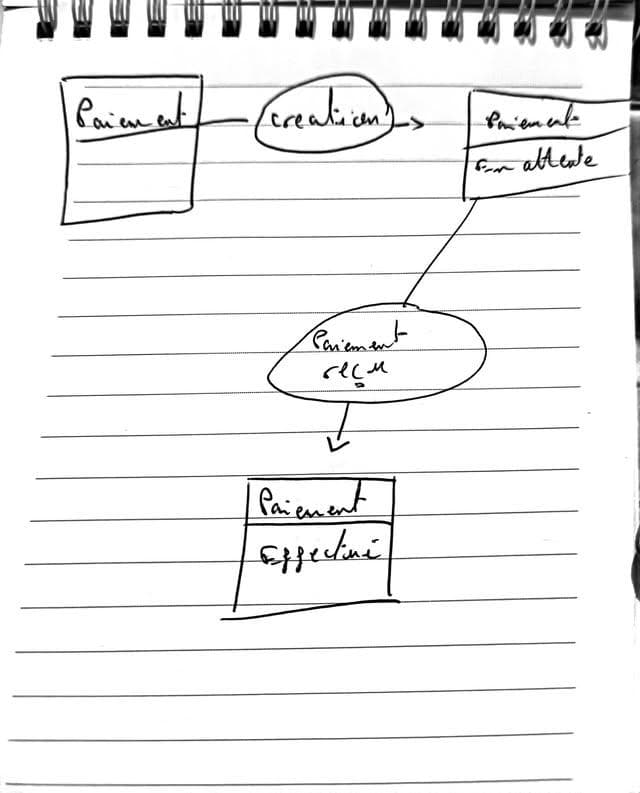 Paiement
creation
Paiement
En attente
Paiement
reçu
Paiement
Effectué